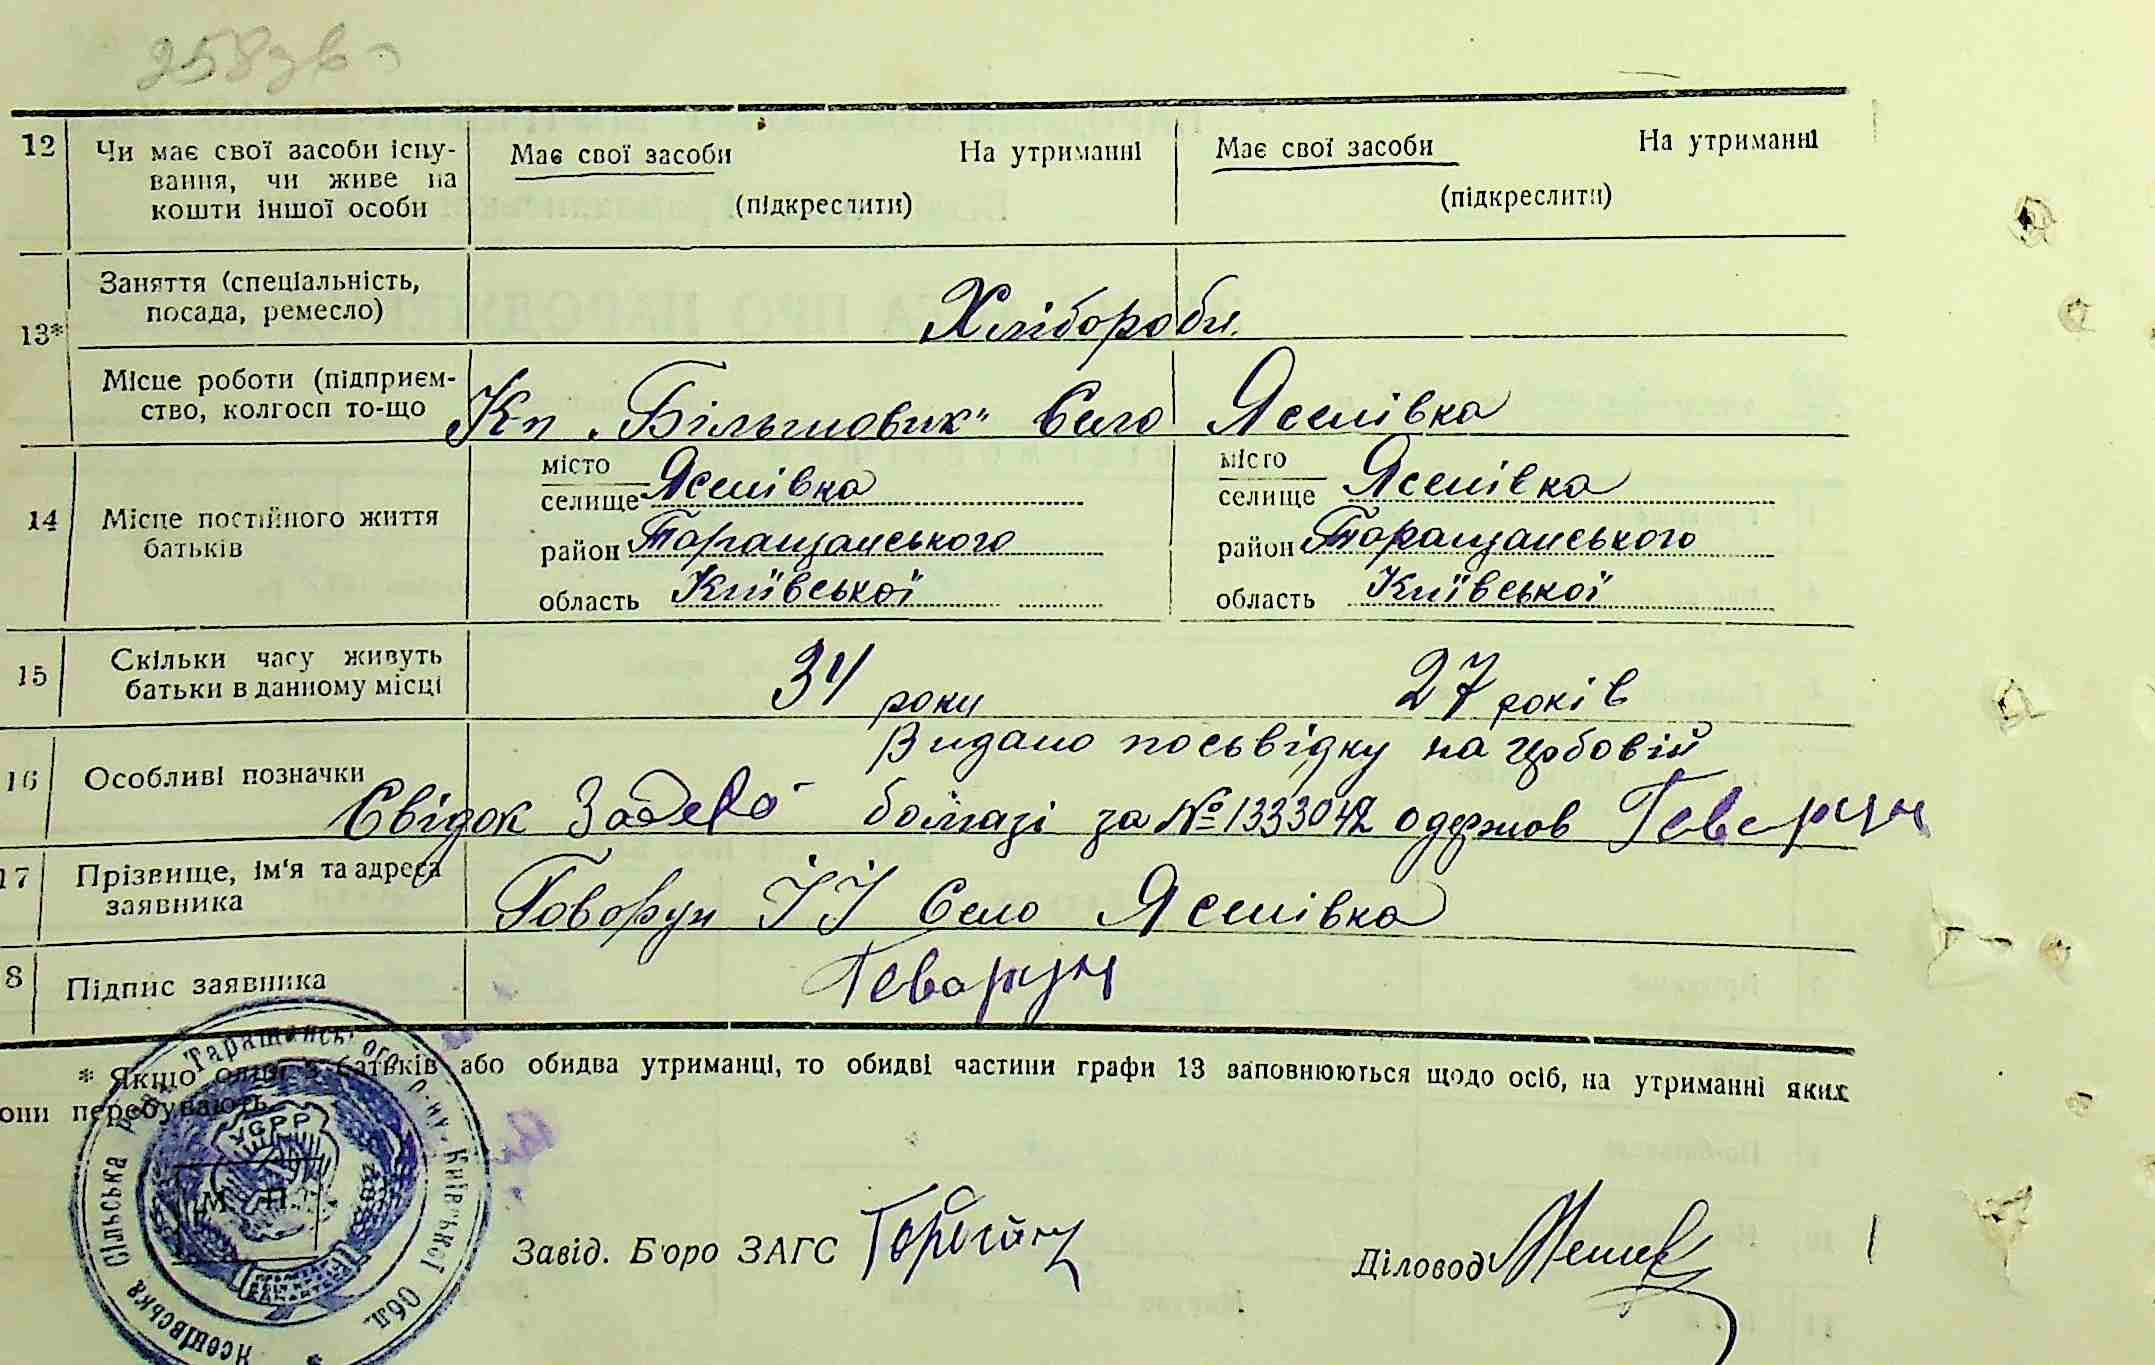 258 зв
12 Чи має свої засоби існу-
вання, чи живе на
кошти іншої особи
Має свої засоби На утриманні
(підкреслити)
Має свої засоби На утриманні
(підкреслити)
13*
Заняття (спеціальність,
посада, ремесло)
Хлібороби.
Місце роботи (підприєм-
ство, колгосп то-що
Кп „Більшовик" Село Ясенівка
14 Місце постійного життя
батьків
місто
селище Ясенівка
район Таращанського
область Київської
місто
селище Ясенівка
район Таращанського
область Київської
15 Скільки часу живуть
батьки в данному місці
34 роки 27 років
16 Особливі позначки
Видано посьвідку на гербовій
Свідок бомазі за № 1333042 одержав Говорун
17 Прізвище, ім'я та адреса
заявника
Говорун І І Село Ясенівка
8 Підпис заявника
Говорун
* Якщо один з батьків або обидва утриманці, то обидві частини графи 13 заповнюються щодо осіб, на утриманні яких
они перебувають.
Ясенівська сільська рада Таращанського р-ну, Київської обл.
УСРР
М. П.
Завід. Бюро ЗАГС
Діловод